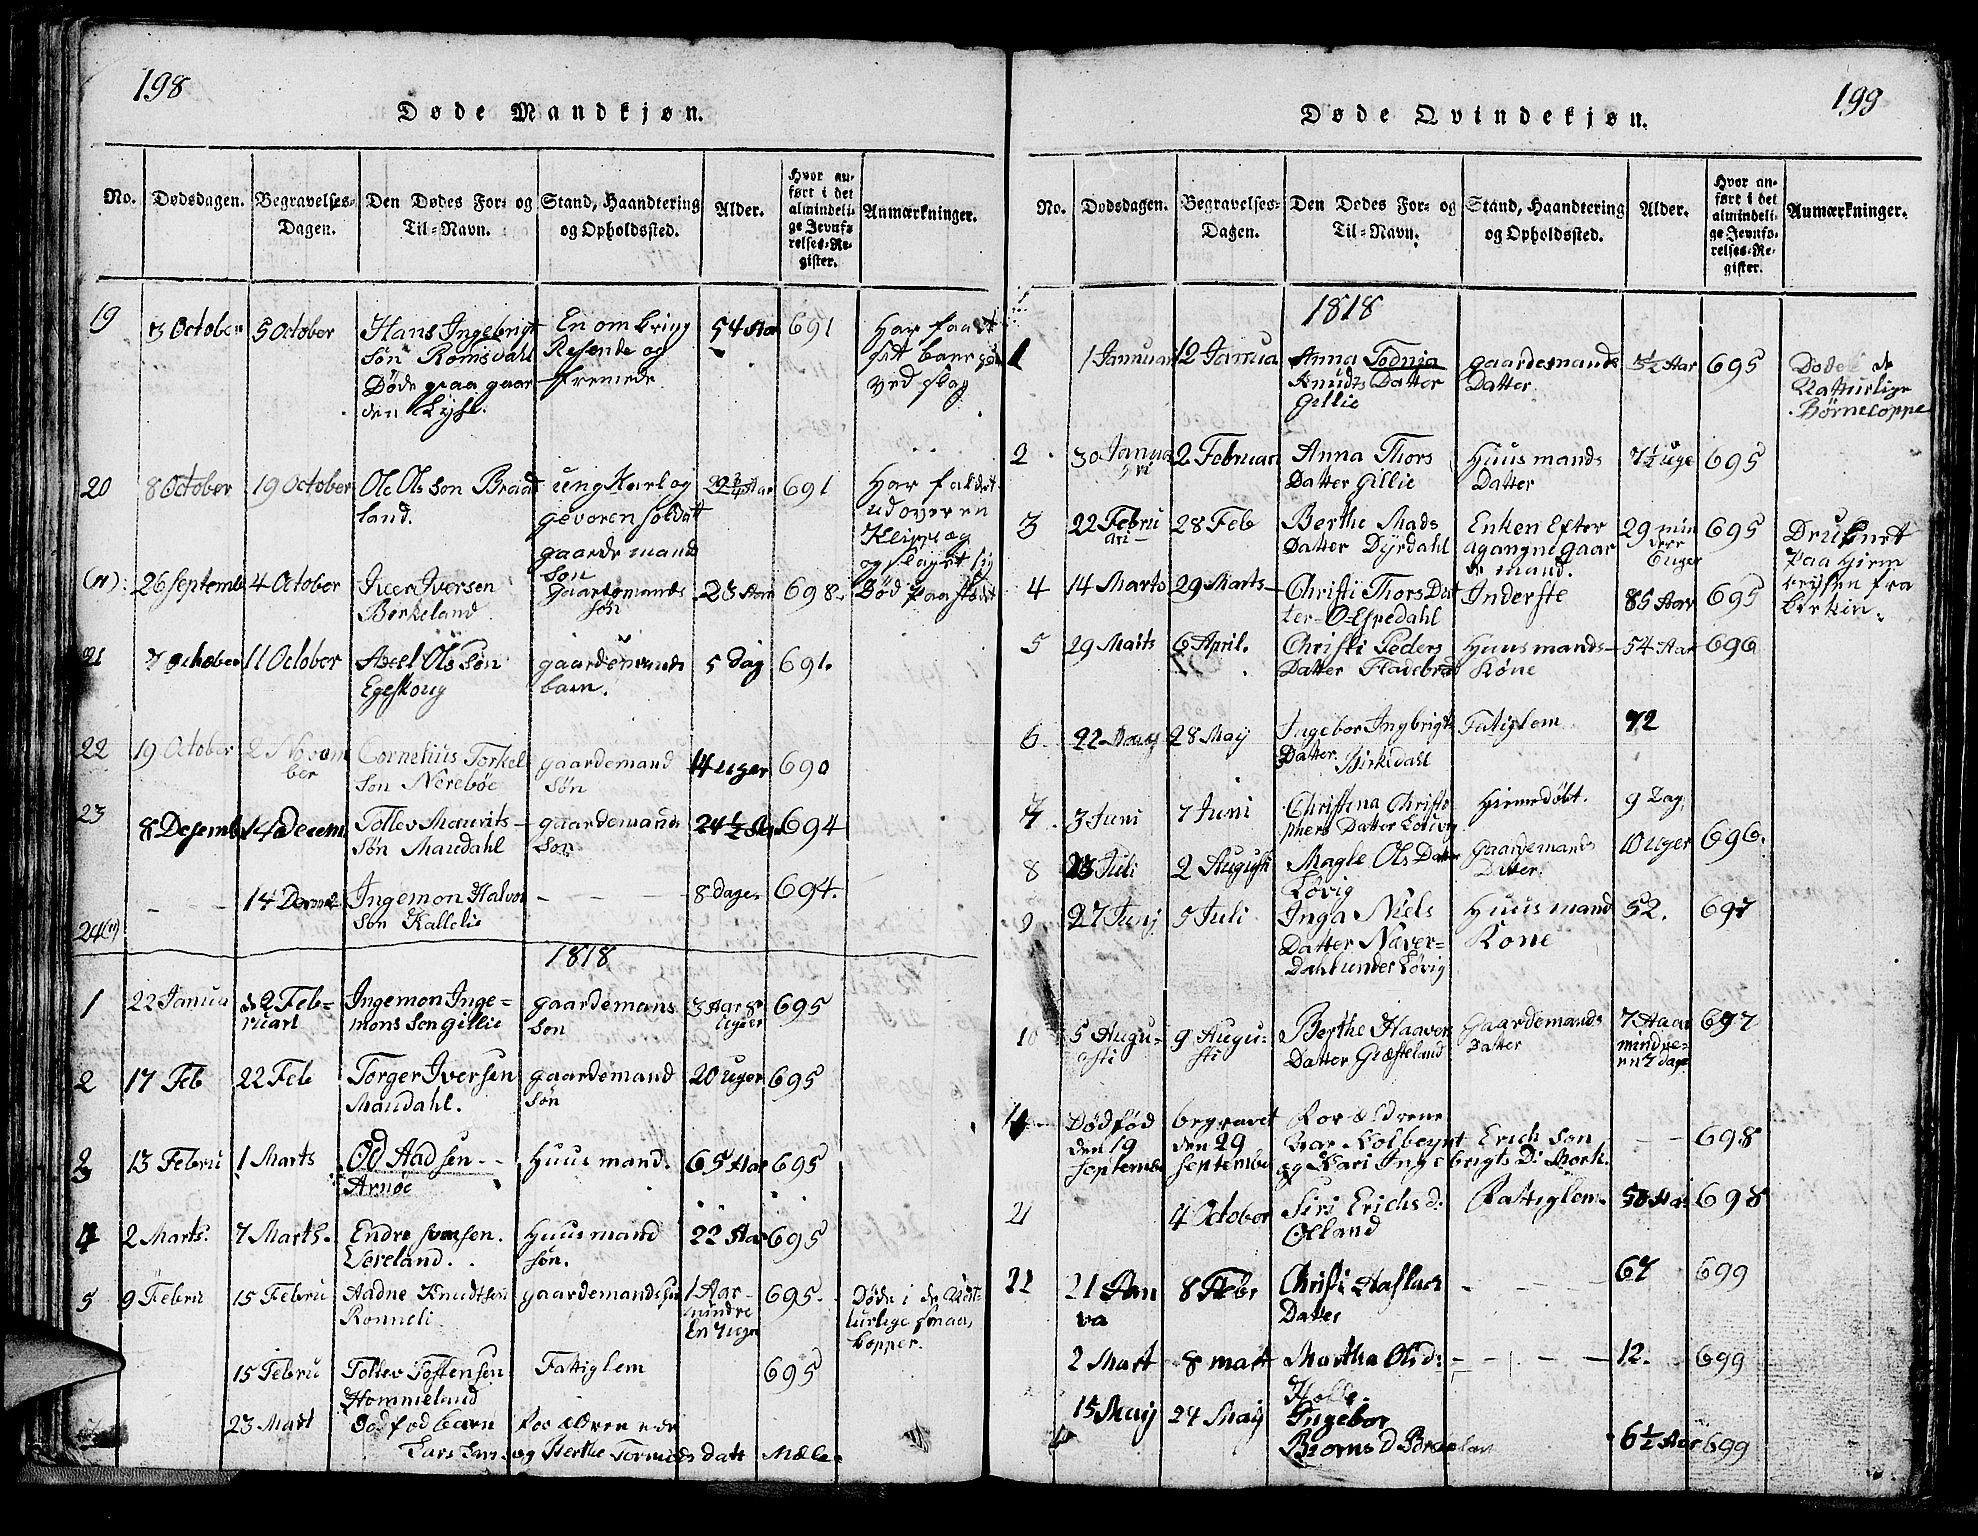 198
Døde Mandkjøn.
No.
Dødsdagen.
Begravelses-
Dagen.
Den Dødes For- og
Til-Navn.
Stand, Haandtering
og Opholdssted.
Alder.
Hvor an-
ført i det
almindeli-
ge Jevnfø-
relses-Re-
gister.
Anmærkninger.
19
3 October
5 October
Hans Ingebrigt
søn Romsdahl
Døde paa gaar
den
En omkring
Resende og
fremede
54 Aar
691
Har faaet
sit bane
ved slag
20
8 October
19 October
Ole Olsson Braad
land.
ung Karl og
gevoren soldat
gaardemands
søn
Aar
691
Har faldet
ud over en
Klippe og
og slaget sig
Død paa stedet
26 Septemb
4 October
Iver Iversen
Berkeland
gaardemands
søn
23 Aar
698
21
7 October
11 October
Axel Ols Søn
Egeskoug
gaardemands
barn.
5 Dag
691.
22
19 October
2 Novem
ber
Cornelius Torkel
son Nerebøe
gaardemand
søn
14 uger
690
23
8 Desemb
14 Decem
Tollev Maurits-
søn Maudahl
gaardemands
Søn
24 ½ Aar
694
24
14 Decemb
Ingemon Halvor
Søn Kallelie
8 dage.
694.
1818
1
22 Janua
2 Feb-
ruari
Ingemon Inge=
mons Søn Gillie
gaardemans
Søn
3 Aar 8
uger
695
2
17 Feb
22 Feb
Torger Iversen
Maudahl.
gaardemand
søn
20 uger
695
3
13 Febru
1 Marts
Od Aadsen
Arnøe
Huusmand.
65 Aar
695
4
2 Marts.
7 Marts.
Endre
Huusmand
søn.
22 Aar
695
5
9 Febru
15 Febru
Aadne Knudtsen
Ronneli
gaardemandssøn
1 Aar
mindre
En 7 uger
695.
Døde i de Nat
turlige smaa
kopper.
15 Febru
Tollev Tostensen
Hommeland
Fattiglem
695
23 Mart
dødfød barn
Forældrene var
Lars og Berthe Tormods datt
Mæle
199
Døde Qvindekjøn.
No.
Dødsdagen.
Begravelses-
Dagen.
Den Dødes For- og
Til-Navn.
Stand, Haandtering
og Opholdssted.
Alder.
Hvor an-
ført i det
almindeli-
ge Jevnfø-
relses-Re-
gister.
Anmærkninger.
1818
1
1 Januar
12 Janua
Anna Todnia
Knudts Datter
Gillie
gaardemands
Datter.
5½ Aar
695
Døde de
Natturlige
Børnecoppe
2
30 Janua
ri
2 Februari
Anna Thors
Datter Gillie
Huusmands
Datter
7½ uge
695
3
22 Febru
ari
28 Feb
Berthe Mads
Datter Dyrdahl
Enken Efter
agangne gaar
de mand.
29 min
dere
6 uger
695
Druknet
paa Hjem
reysen fra
kirken.
4
14 Marts
29 Marts
Christi Thors Dat
ter Espedahl
Inderste
85 Aar
695
5
29 Marts
6 April.
Christi Peders
Datter Fladebræ
Huusmands
Kone
54 Aar
696
6
22 May
28 May
Ingebor Ingbrigt
Datter Birkedahl
Fatiglem
72
7
3 Juni
7 Juni
Christina Christo
phers Datter Løvig
Hjemedøbt.
9 Dag
8
23 Juli
2 Augusti
Magle Ols Datter
Løvig
Gaardemands
Datter
10 uger
696.
9
27 Juni
5 Juli
Inga Niels
Datter Næver=
Dahl under Løvig
Huusmand
Kone
52.
697
10
5 Augu-
sti
9 Augu-
sti
Berthe Haavers
Datter Græsteland
Gaardemands
Datter
7 Aar
mindre
en 7 dage
697
Dødfød
den 19
September
begravet
den 29
September
Forældrene
var Kolbeynt Erichsøn
og Kari Ingebrigts D: Mork.
698
21
4 October
Siri Erichs d:
Ølland
Fattiglem.
58 Aar
698
22
21 Jan
va
8 Febr
Christi Aaslach
Datter
67
699
2 Mart
8 mart
Martha Olsd:
Holle.
12.
699
15 Maij
24 Maij
Ingebor
Biorns D
6½ Aar
699